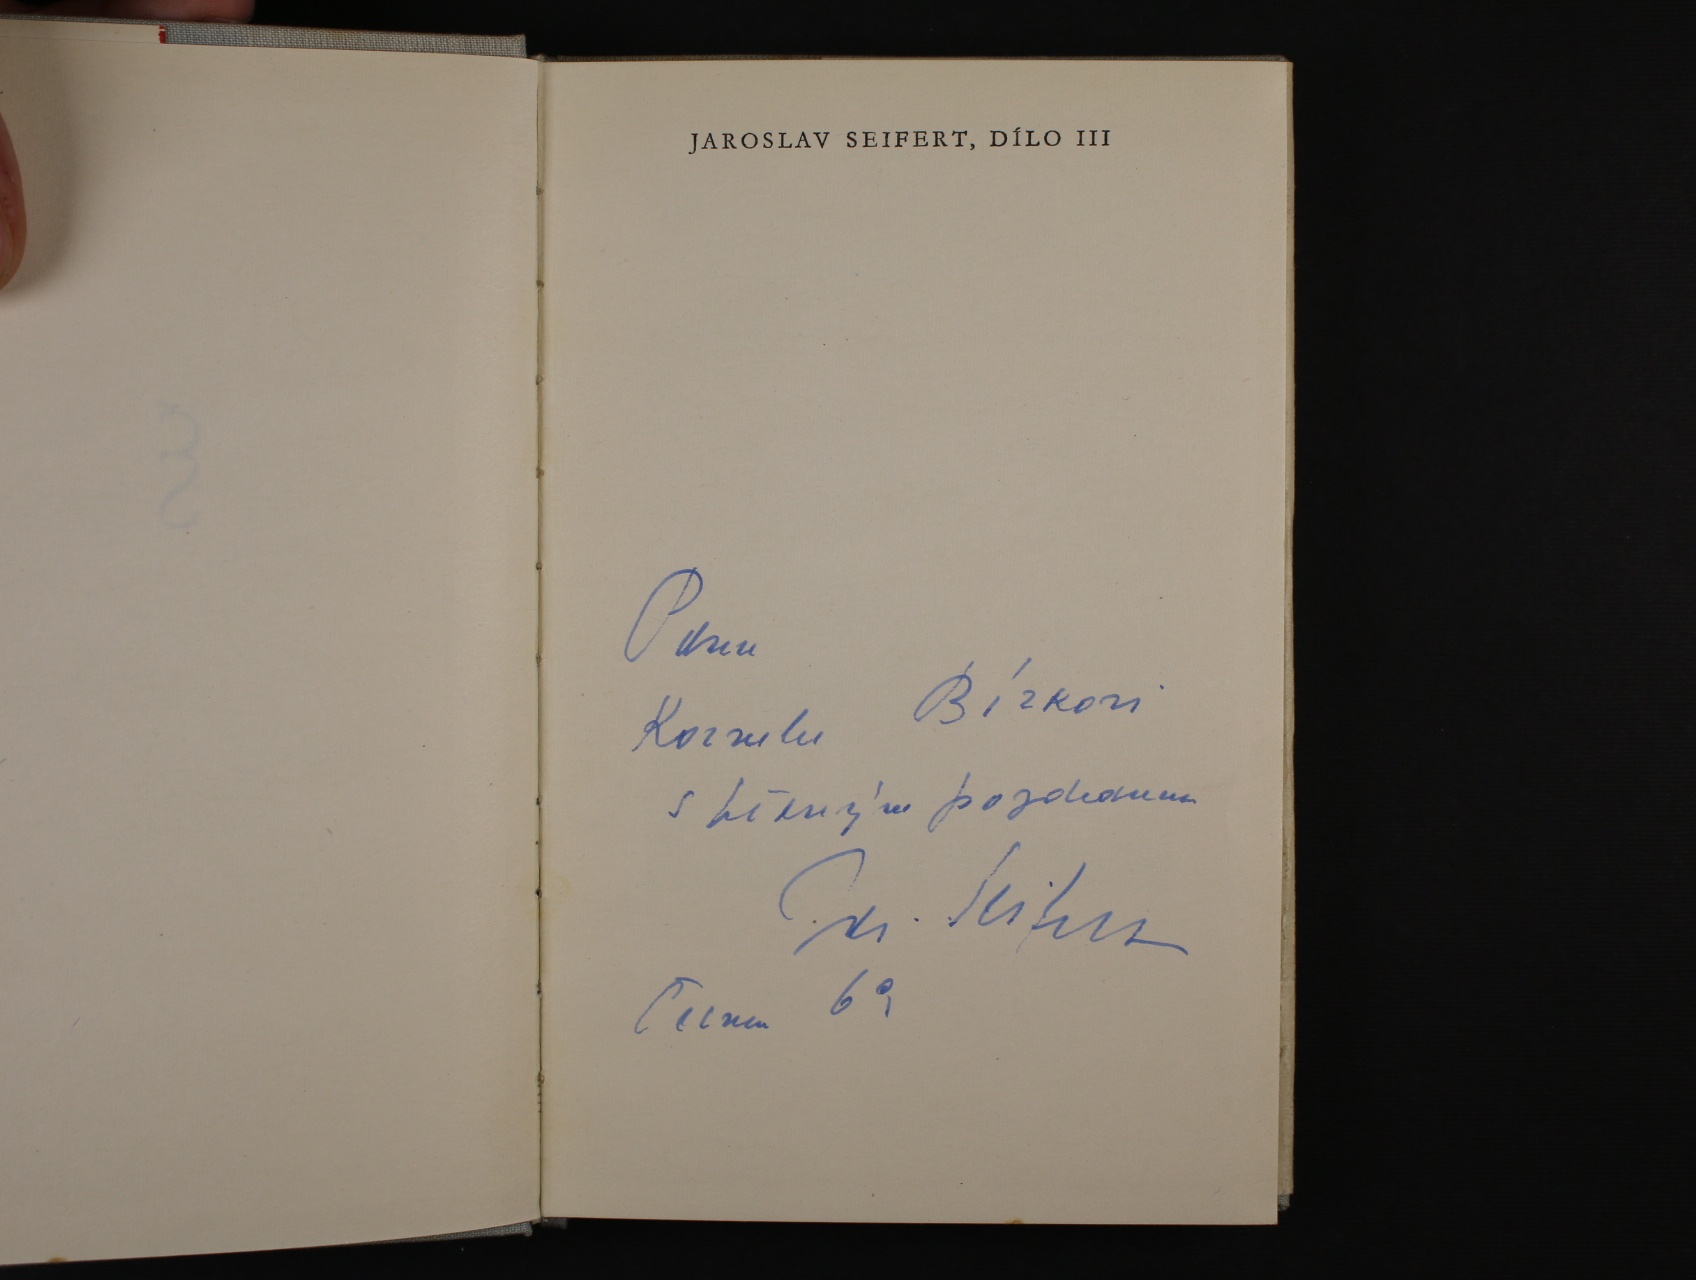 JAROSLAV SEIFERT, DÍLO III
Panu
Kornelu Bízkovi
s pěkným pozdravem
Jar. Seifert
Červen 69